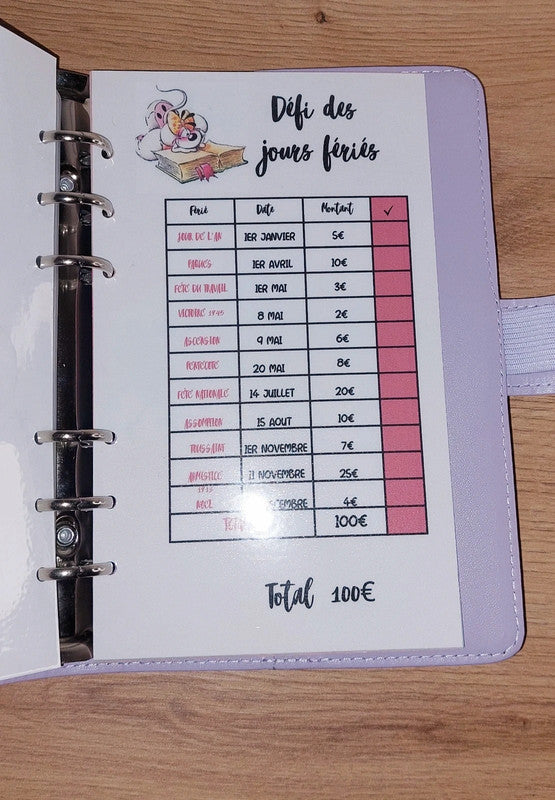 Défi des
jours fériés
Férié Date Montant ✓
JOUR DE L'AN 1ER JANVIER 5€
PAQUES 1ER AVRIL 10€
FETE DU TRAVAIL 1ER MAI 3€
VICTOIRE 1945 8 MAI 2€
ASCENSION 9 MAI 6€
PENTECOTE 20 MAI 8€
FETE NATIONALE 14 JUILLET 20€
ASSOMPTION 15 AOUT 10€
TOUSSAINT 1ER NOVEMBRE 7€
ARMISTICE 11 NOVEMBRE 25€
NOEL 4€
100€
Total 100€